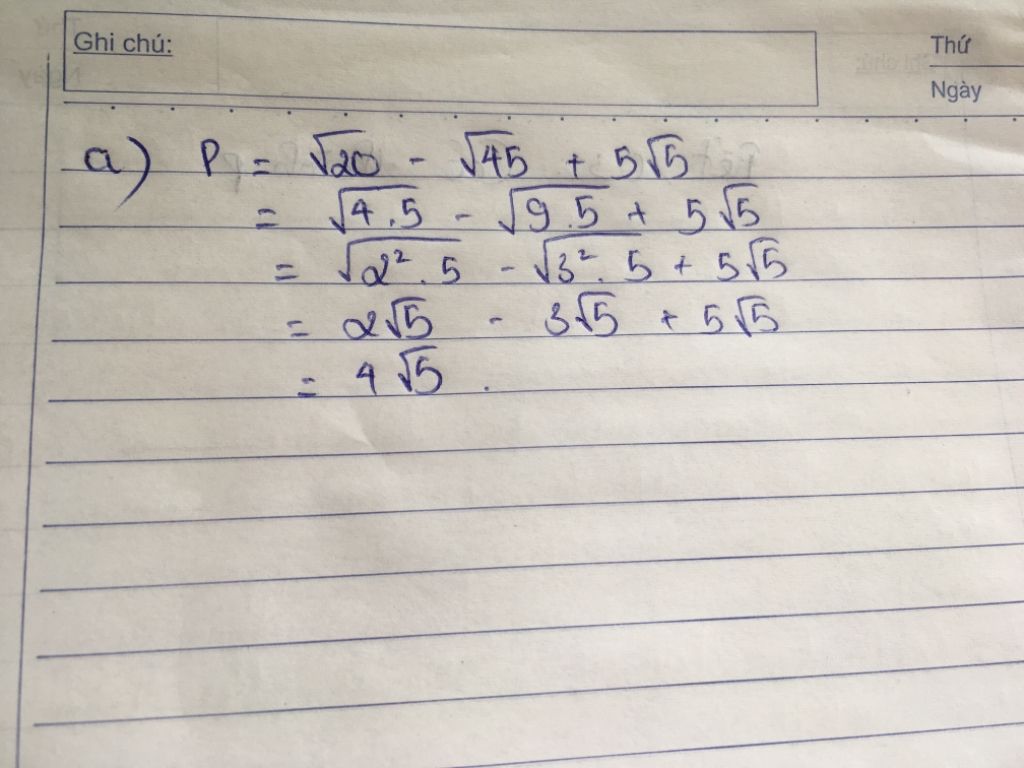 Ghi chú:
Thứ
Ngày
a) P = √20 - √45 + 5√5
= √4.5 - √9.5 + 5√5
= √2².5 - √3².5 + 5√5
= 2√5 - 3√5 + 5√5
= 4√5.